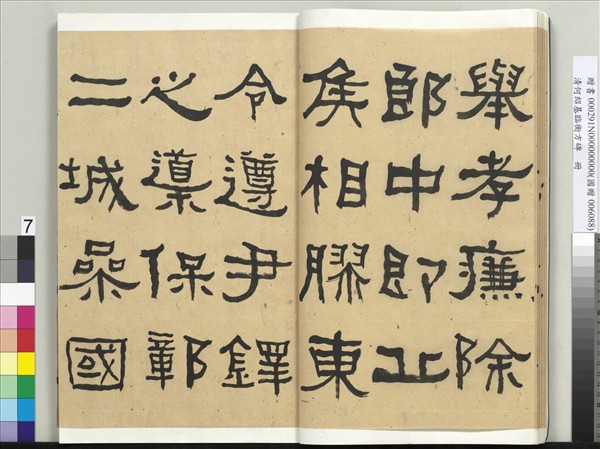 舉孝廉除
郎中即丘
侯相膠東
令遵尹鐸
之導保鄣
二城參國
贈書 000291N000000000(國贈 006088)
清何紹基臨衡方碑 冊
7